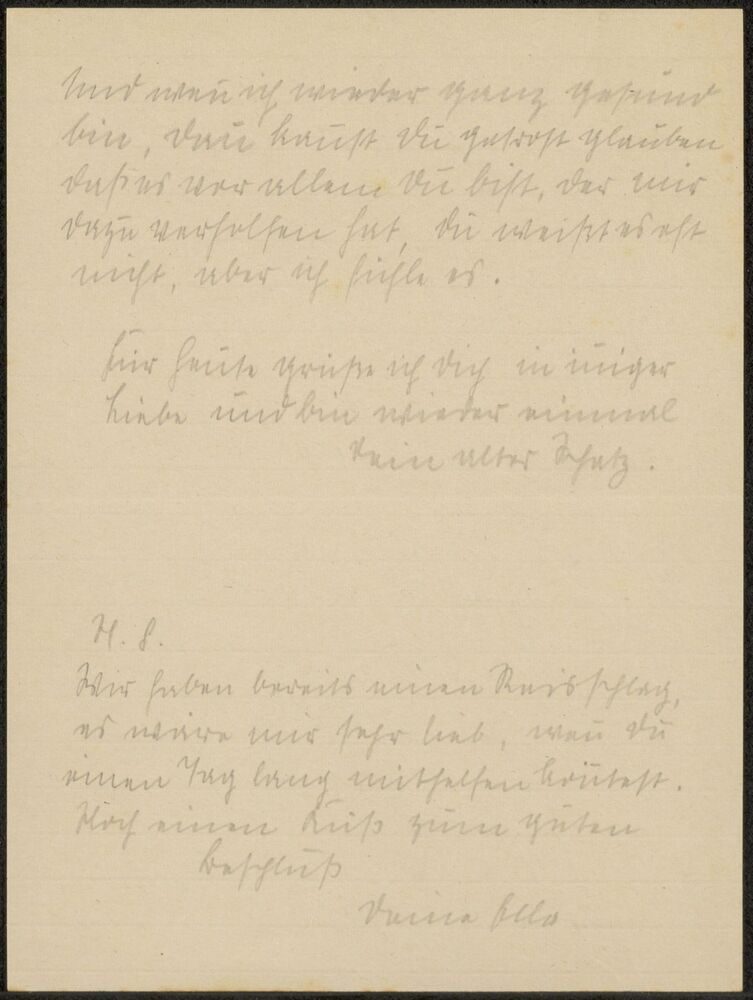 Und wen̄ ich wieder ganz gesund
bin, dan̄ kan̄st Du getrost glauben
daß es vor allem Du bist, der mir
dazu verholfen hat, du weißt es oft
nicht, aber ich fühle es.
Für heute grüße ich Dich in in̄iger
Liebe und bin wieder einmal
Dein alter Schatz.
N. S.
Wir haben bereits einen Reisschlag,
es wäre mir sehr lieb, wen̄ Du
einen Tag lang mithelfen kön̄test.
Noch einen Kuß zum guten
Beschluß
Deine